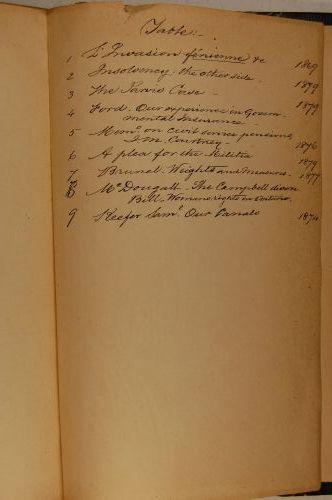 Table:-
1 L'Invasion fénienne &c 1869
2 Insolvency - the other side - 1879
3 The Jarvis Case - 1879
4 Ford - Our experience in Govern-
mental Insurance.
5 Memo on civil service pensions,
J.M. Courtney - 1876
6 A plea for the Militia 1879
7 Brunel - Weights and Measures. 1877
8 McDougall - The Campbell divorce
Bill - Womens rights in
9 Keefer Saml. Our Canals 1870